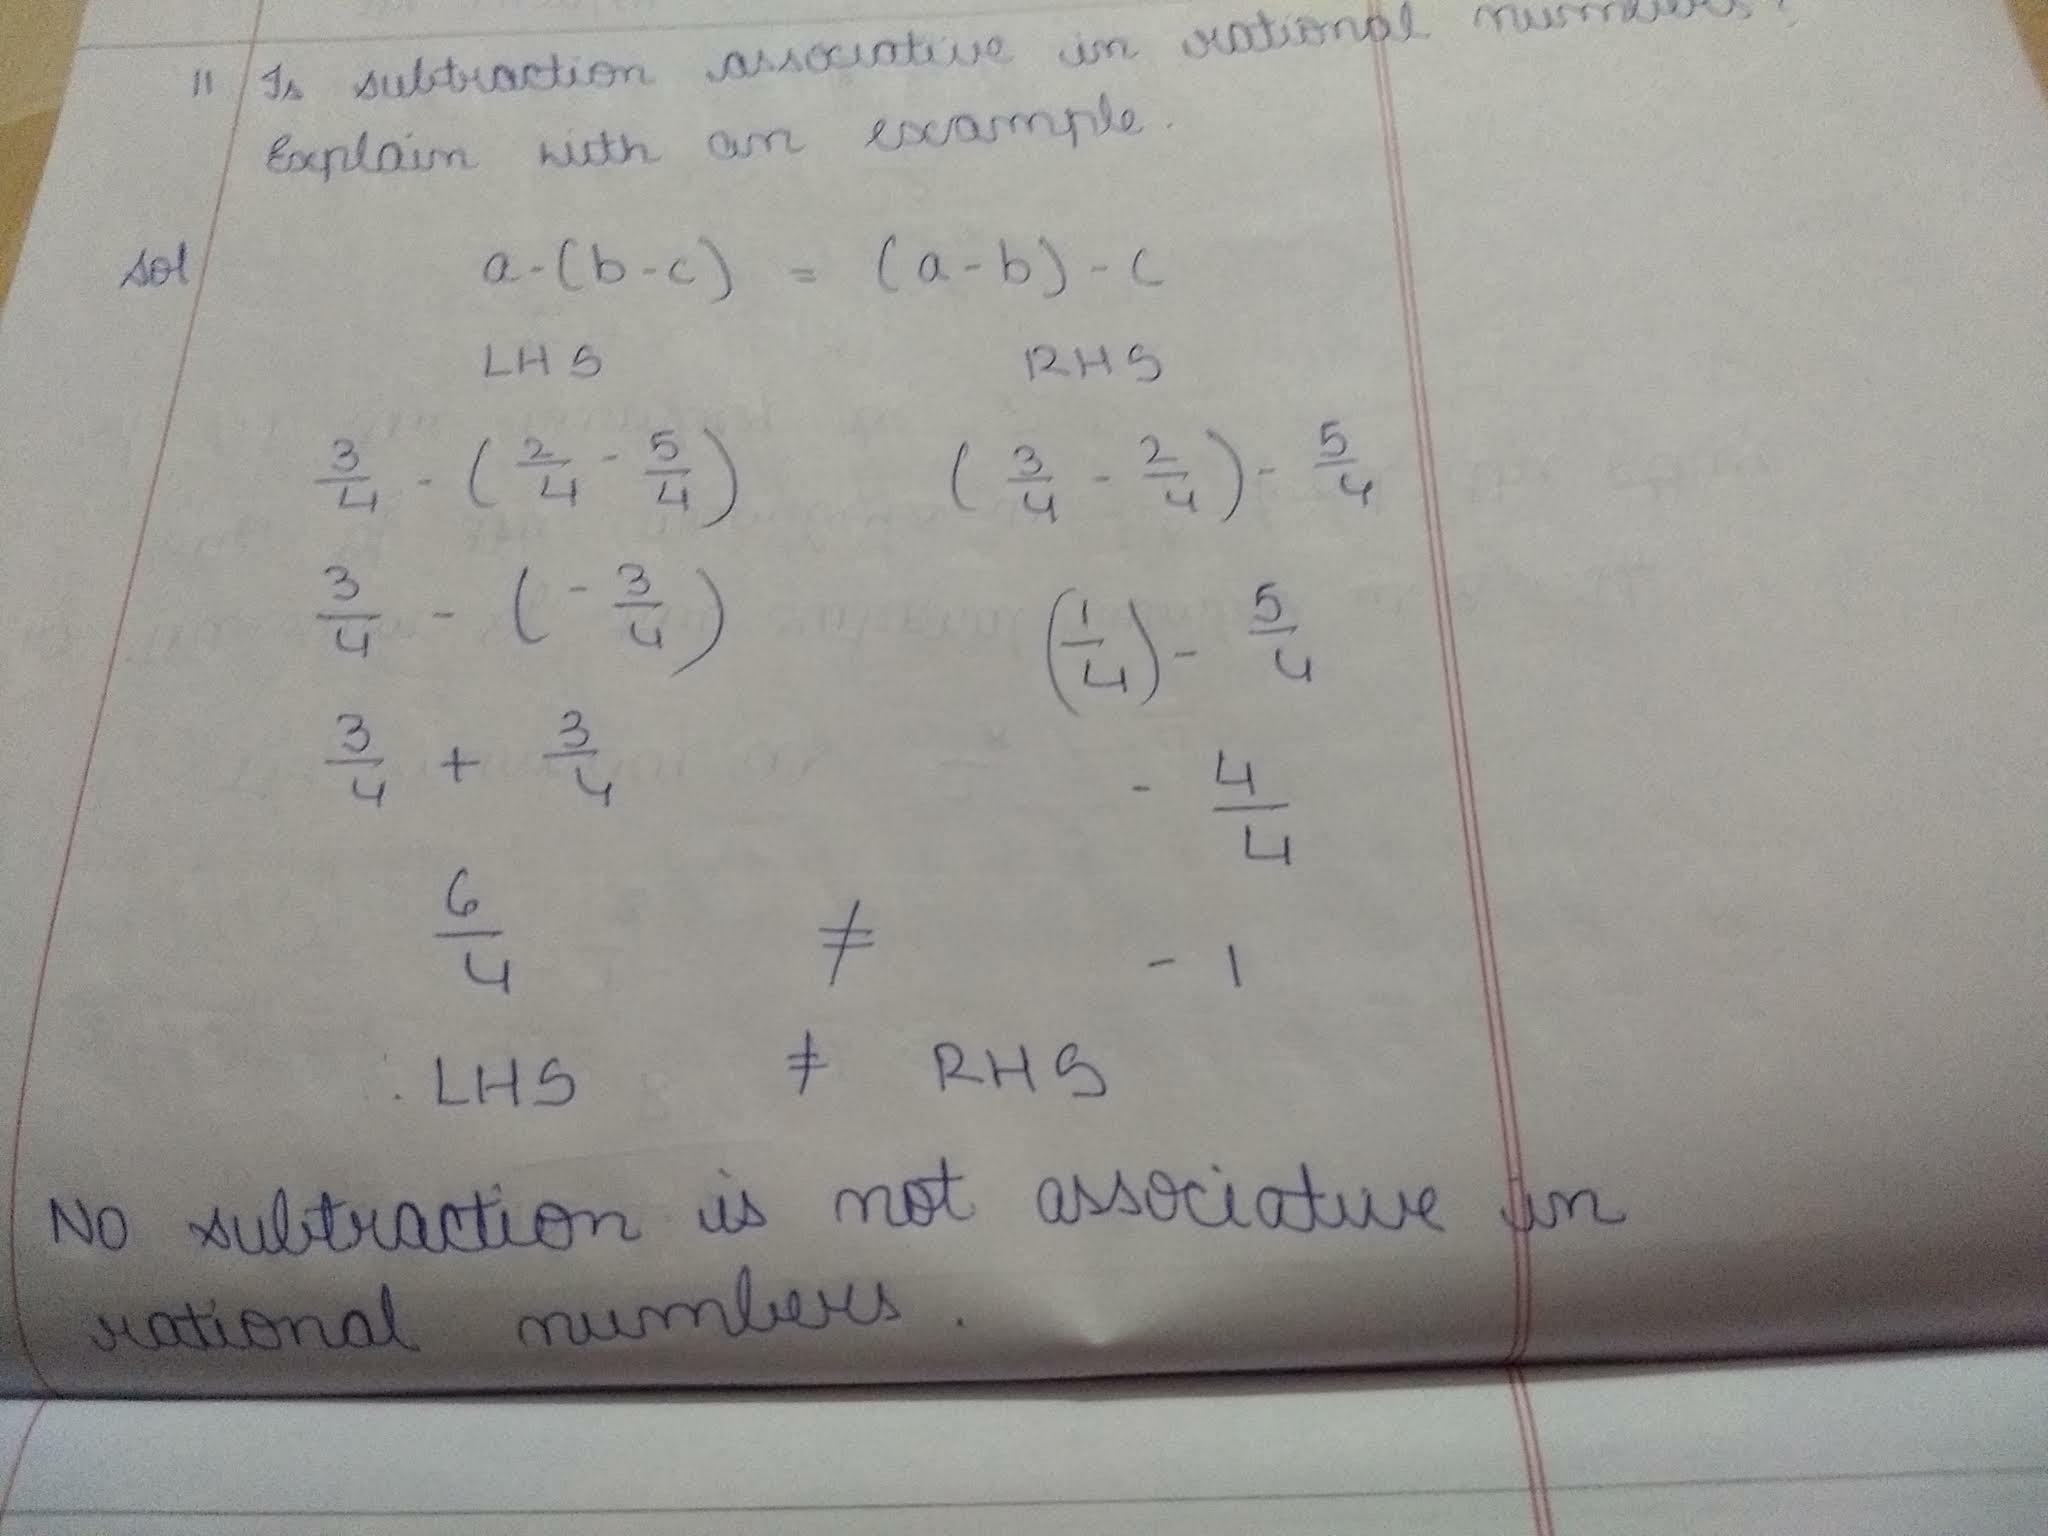 11 Is subtraction associative in rational numbers?
Explain with an example.
Sol a-(b-c) = (a-b)-c
LHS RHS
3/4 - (2/4 - 5/4) (3/4 - 2/4) - 5/4
3/4 - (-3/4) (1/4) - 5/4
3/4 + 3/4 - 4/4
6/4 ≠ -1
∴ LHS ≠ RHS
NO subtraction is not associative in
rational numbers.